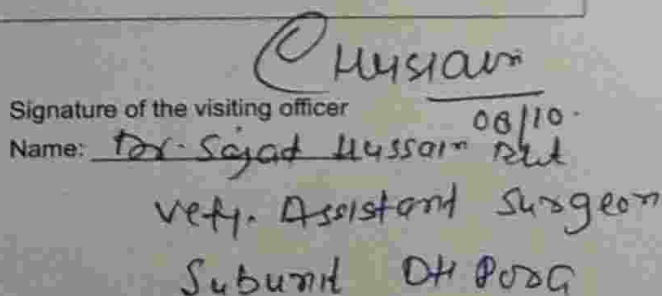 Hussain
Signature of the visiting officer
08/10.
Name: Dr. Sajad Hussain
Vety. Assistant Surgeon
Subunit DH Pora